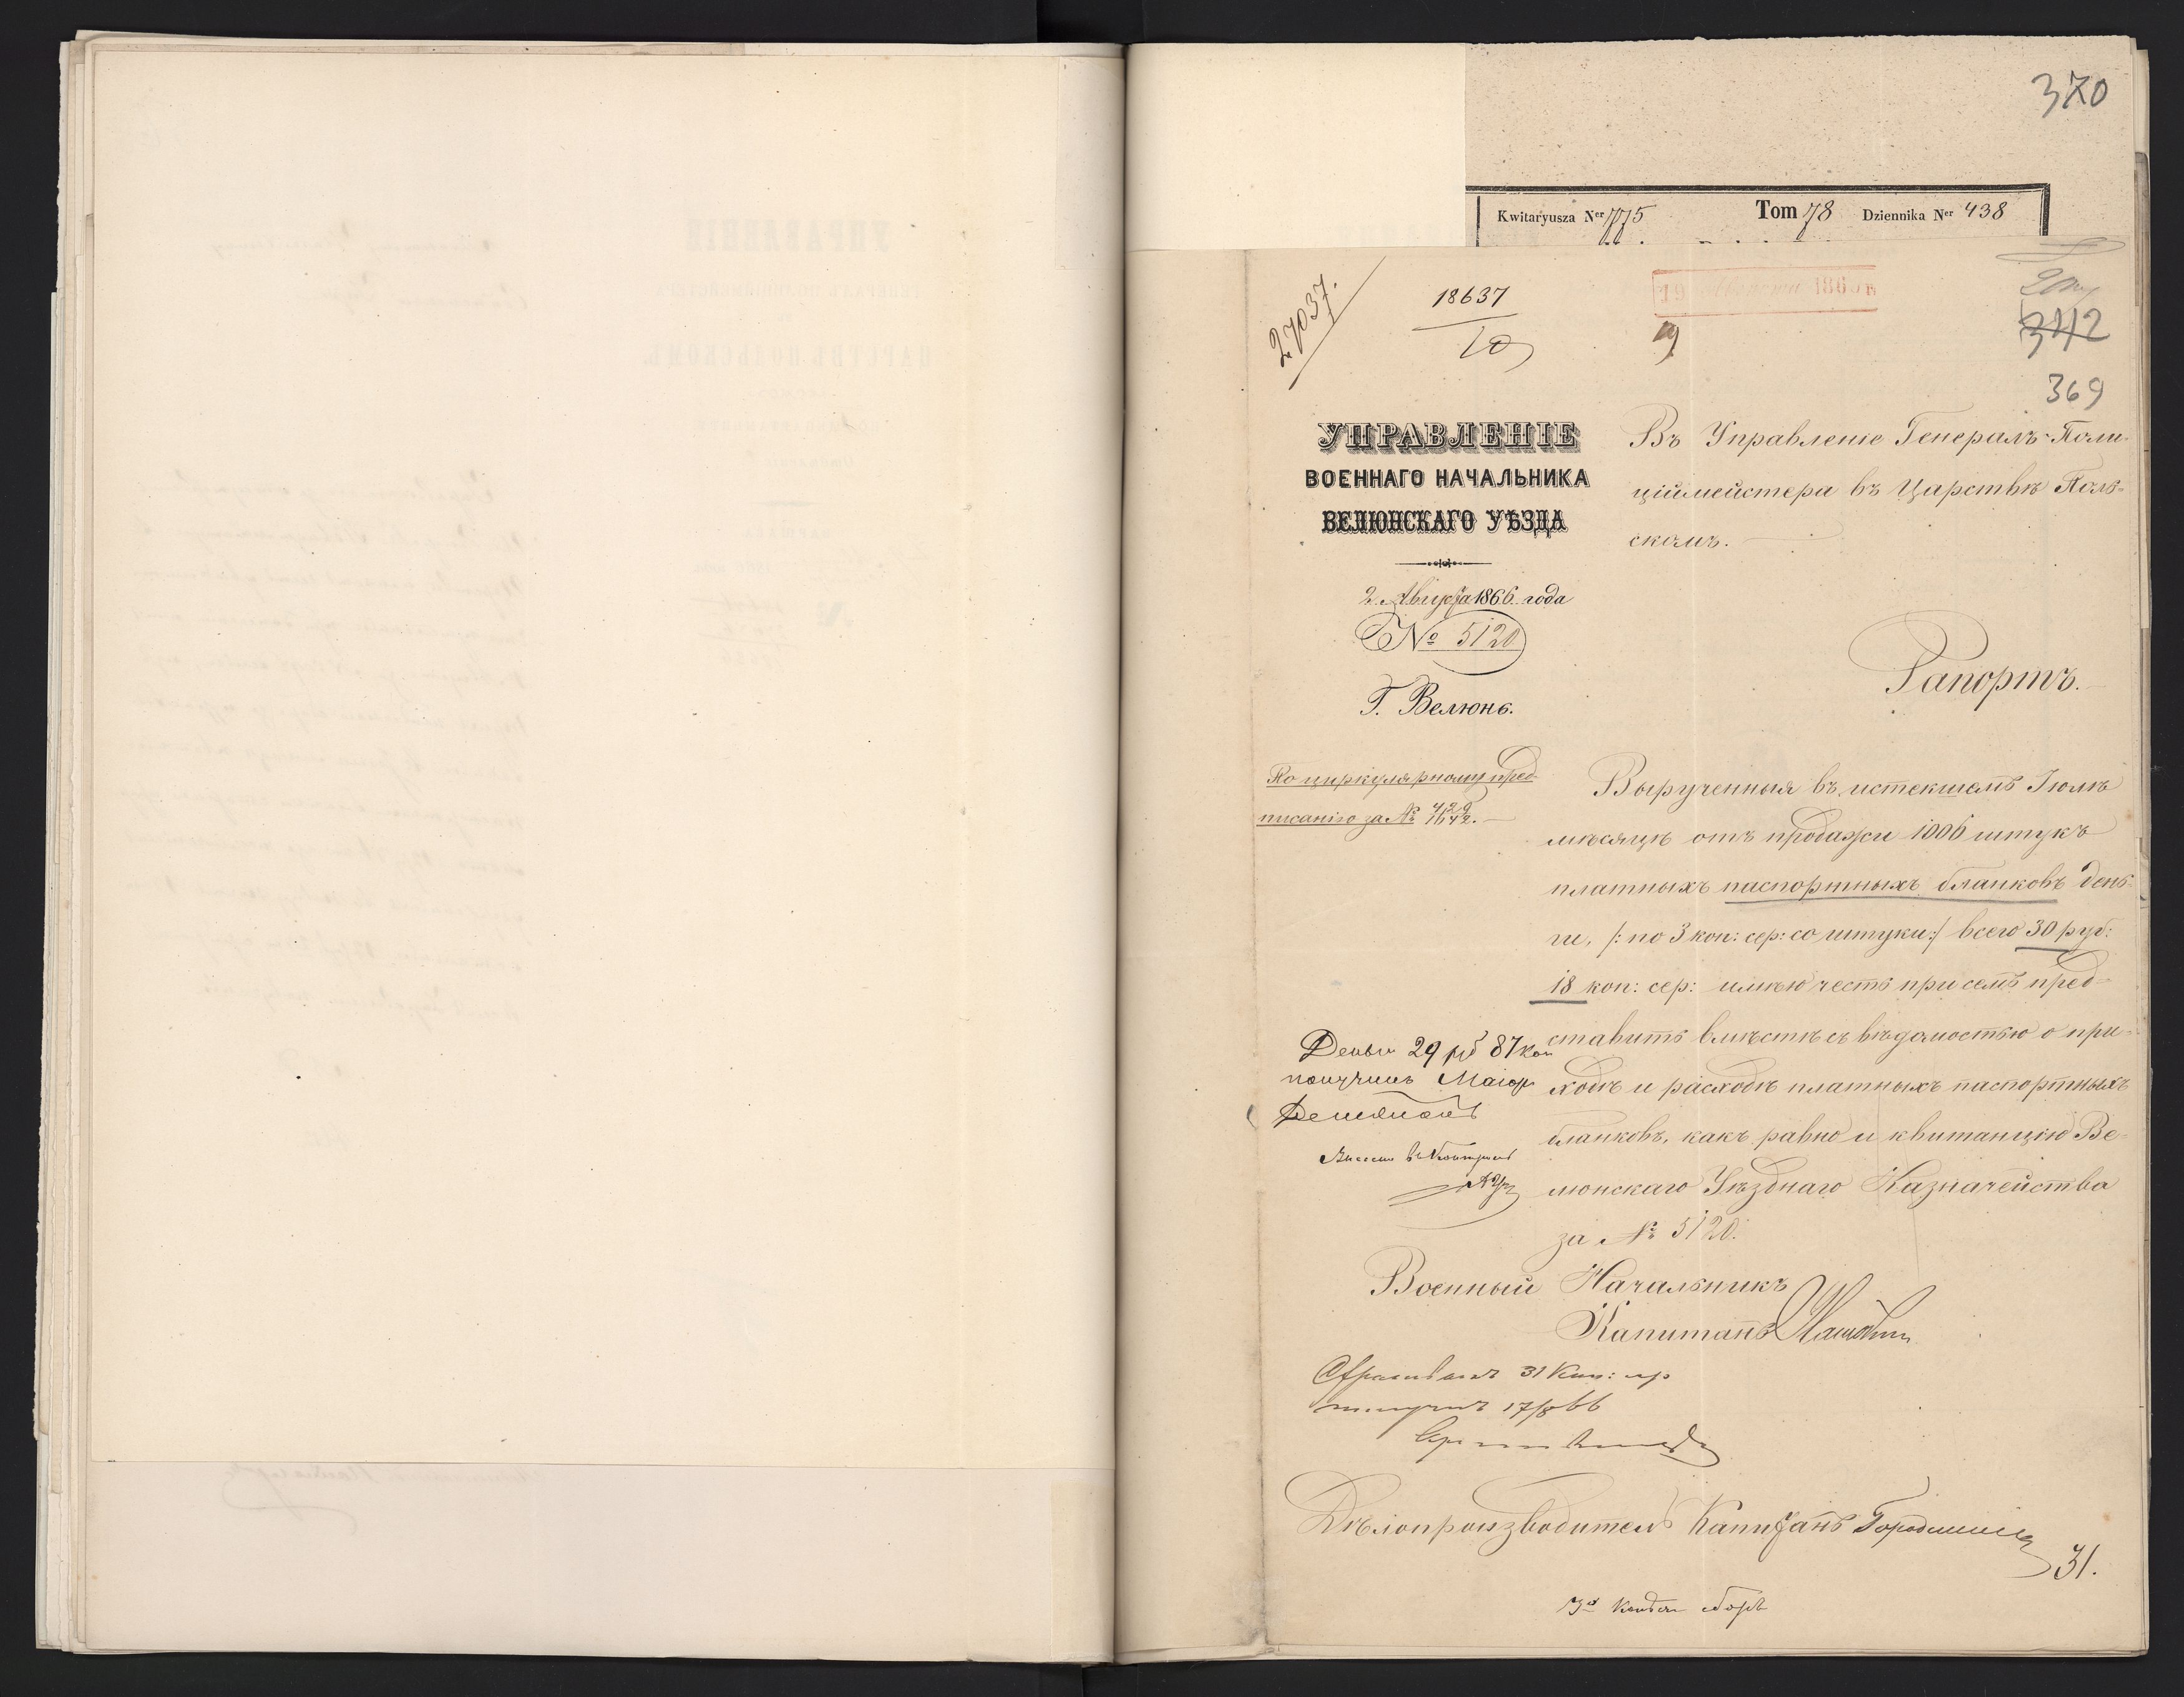 370
Kwitaryusza Ner 775 Tom 78 Dziennika Ner 438
27037.
18637
10
342
369
УПРАВЛЕНІЕ
ВОЕННАГО НАЧАЛЬНИКА
ВЕЛЮНСКАГО УѢЗДА
2 Августа 1866 года
№ 5120
Г. Велюнь.
Въ Управленіе Генералъ-Поли-
ціймейстера въ Царствѣ Поль-
скомъ.
Рапортъ.
По циркулярному пред-
писанію за №
Вырученныя въ истекшемъ Іюлѣ
мѣсяцѣ отъ продажи 1006 штукъ
платныхъ паспортныхъ бланковъ день-
ги, /: по 3 коп: сер: со штуки :/ всего 30 руб:
18 коп: сер: имѣю честь при семъ пред-
ставить вмѣстѣ съ вѣдомостью о при-
ходѣ и расходѣ платныхъ паспортныхъ
бланковъ, какъ равно и квитанцію Ве-
люнскаго Уѣзднаго Казначейства
за № 5120.
Деньги 29 ру 87 коп
получилъ Маіоръ
Военный Начальникъ
Капитанъ
31 Коп: ср
получилъ 17/8 66
Дѣлопроизводитель Капитанъ
31.